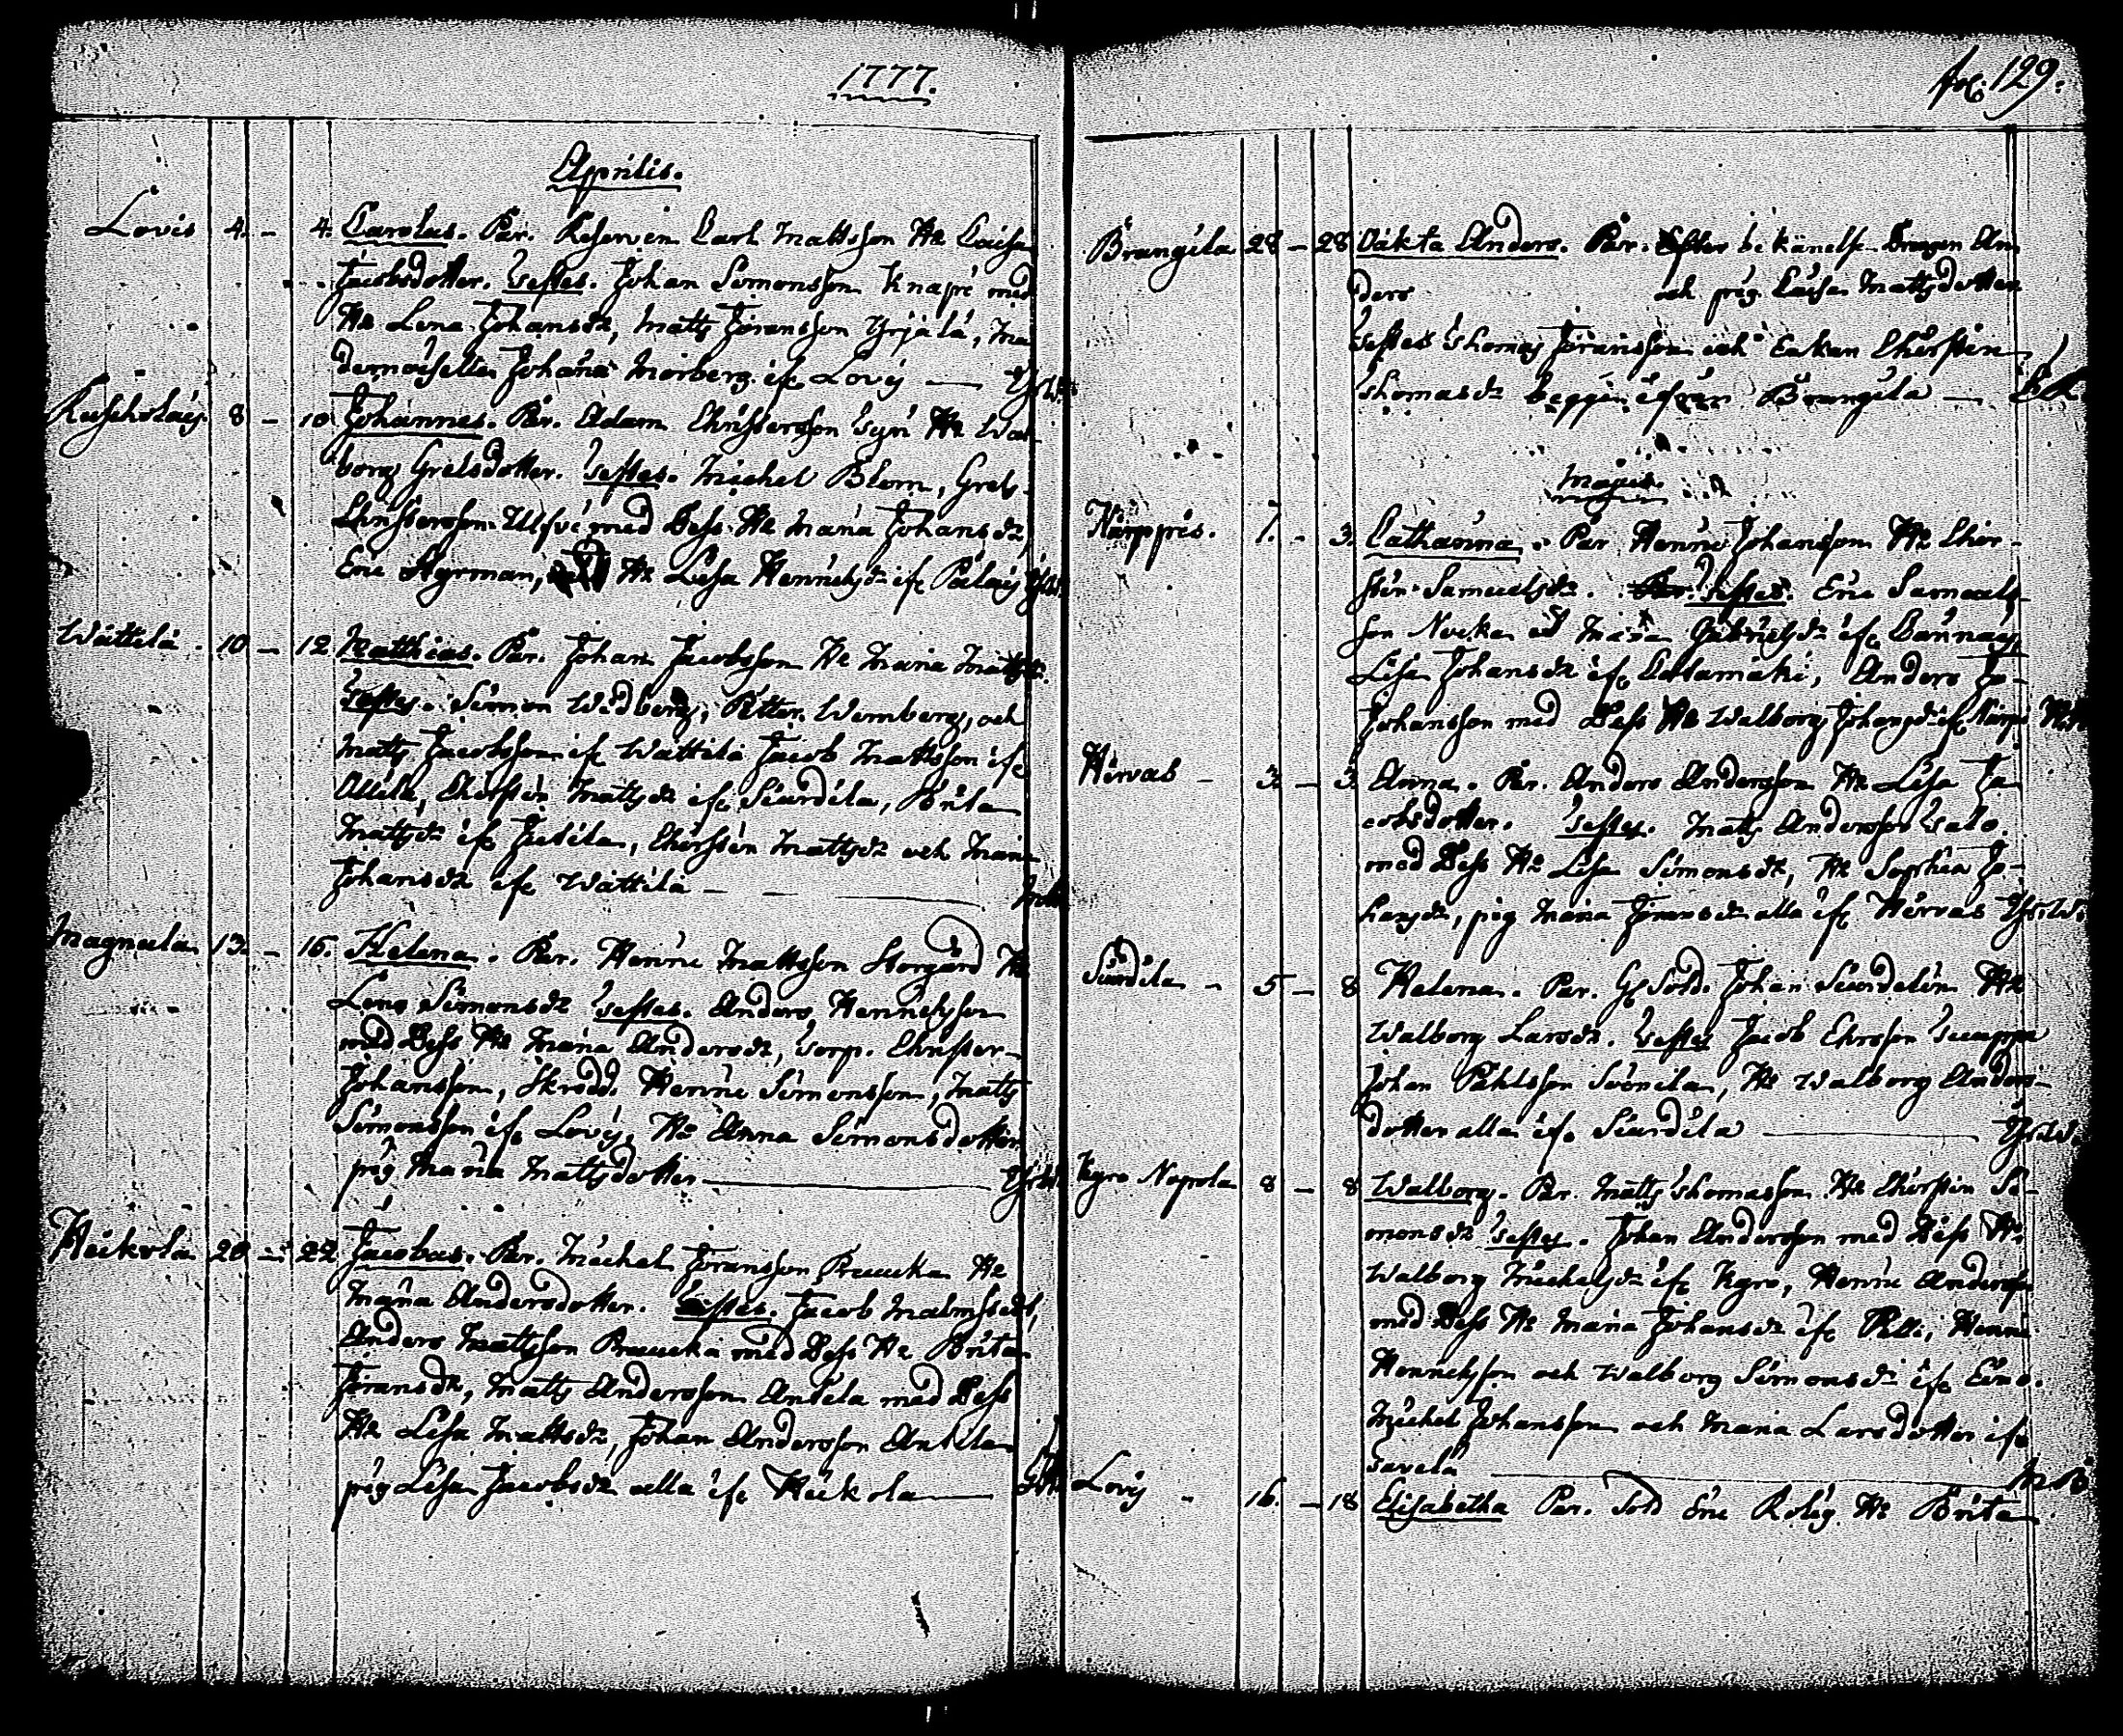 1777.
Aprilis.
Lovis 4. - 4. Carolus. Par. Reserven Carl Mattsson H: Caisa
Jacobsdotter. Testes. Johan Simonsson Knapé med
H: Lena Johansdr, Matts Göransson Yrjälä, Ma
demoiselle Johana Morberg if: Lovij
8 - 10 Johannes. Par. Adam Christersson Syri H: Wal
borg Grelsdotter. Testes. Michel Blom, Grels
Christersson Ulfve med Dess H: Maria Johansdr,
Eric Styrman, H: Lisa Henrichsdr if: Palaij
Wättilä. 10 - 12 Matthias. Par. Johan Jacobsson H: Maria Mattsdr.
Testes. Simon Widberg, Petter Wimberg, och
Matts Jacobsson if: Wättilä Jacob Mattsson if:
Allila, Chirstin Mattsdr if: Siurdila, Brita
Mattsdr if: Jutila, Chirstin Mattsdr och Maria
Johansdr if: Wättilä
Magnula 13. - 15. Helena. Par. Henric Mattsson Storgård H:
Lena Simonsdr Testes. Anders Henrichsson
med Dess H: Maria Andersdr, Torp. Christer
Johansson, Skrädd. Henric Simonsson, Matts
Simonsson if: Lovij, H: Anna Simonsdotter
pig Maria Mattsdotter
Heikola 20 - 22 Jacobus. Par. Michel Göransson Pruucka H:
Maria Andersdotter. Testes. Jacob Malmstedt,
Anders Mattsson Pruucka med Dess H: Brita
Göransdr, Matts Andersson Antila med Dess
H: Lisa Mattsdr, Johan Andersson Antila
pig Lisa Jacobsdr alla if: Heikola
fol. 129.
Brangila 28 - 28 Oäkta Anders. Par. Efter bekänelse Drengen An
ders och pig. Caisa Mattsdotter
Testes Thomas Göransson och Enkan Chirstin
Thomasdr beggie ifrån Brangila
Majus.
Kärppis. 1. - 3. Catharina. Par Henric Johansson H: Chir-
stin Samuelsdr. Testes. Eric Samuels
son Nocka och Maria Gabrielsdr if:
Lisa Johansdr if: Anders Jo-
Johansson med Dess H: Walborg Johansdr if: Kärpp
Hirvas - 3. - 3. Anna. Par. Anders Andersson H: Lisa Ja
cobsdotter. Testes. Matts Andersson Talo
med Dess H: Lisa Simonsdr, H: Sophia Jo-
hansdr, pig Maria Göransdr alla if: Hirvas
Siurdila - 5 - 8 Helena. Par. Gf Sold. Johan Siurdelin H:
Walborg Larsdr. Testes Jacob Ehrsson
Johan Påhlsson Svenila, H: Walborg Anders-
dotter alla if: Siurdila
Kyro Napola 8 - 8 Walborg. Par. Matts Thomasson H: Chirstin Si-
monsdr Testes. Johan Andersson med Dess H:
Walborg Michelsdr if: Kyro, Henric Andersson
med Dess H: Maria Johansdr if: Pelli, Henric
Henrichsson och Walborg Simonsdr if: Eino.
Michel Johansson och Maria Larsdotter if:
Savela M.B.
Lovij - 16. - 18 Elisabetha Par. Sold Eric Rolig H: Brita